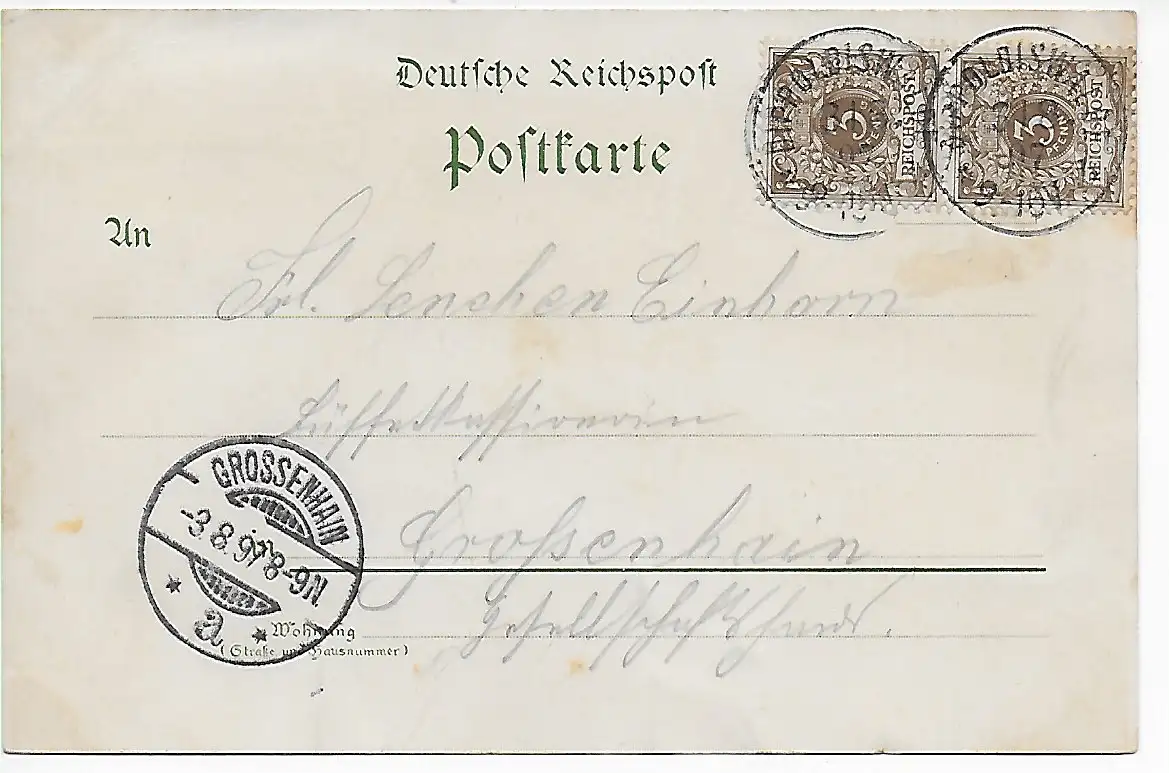 Deutsche Reichspost
Postkarte
3
PFENNIG
REICHSPOST
3
PFENNIG
REICHSPOST
An
Frl. Lenchen Einhorn
Büffetkassiererin
Grossenhain
GROSSENHAIN
-3.8.97 8-9N.
* a *
Wohnung
(Straße und Hausnummer)
Gesellschaftshaus.